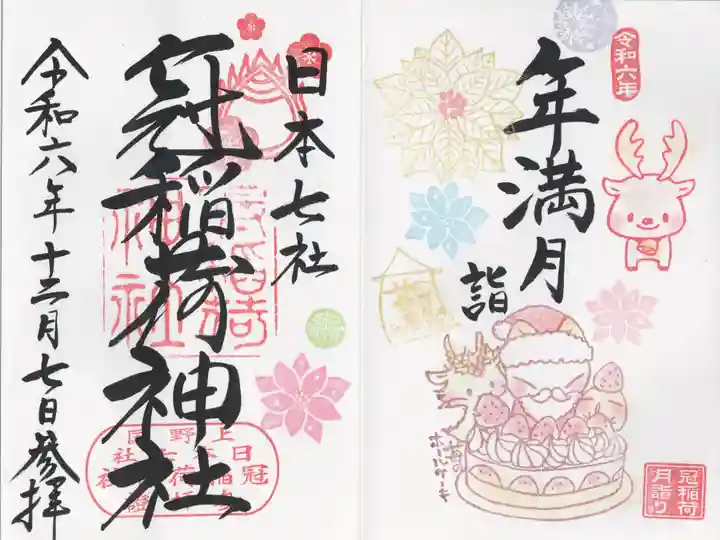 令和六年
年満月
詣
冠稲荷
月詣り
日本七社
冠稲荷神社
令和六年十二月七日参拝